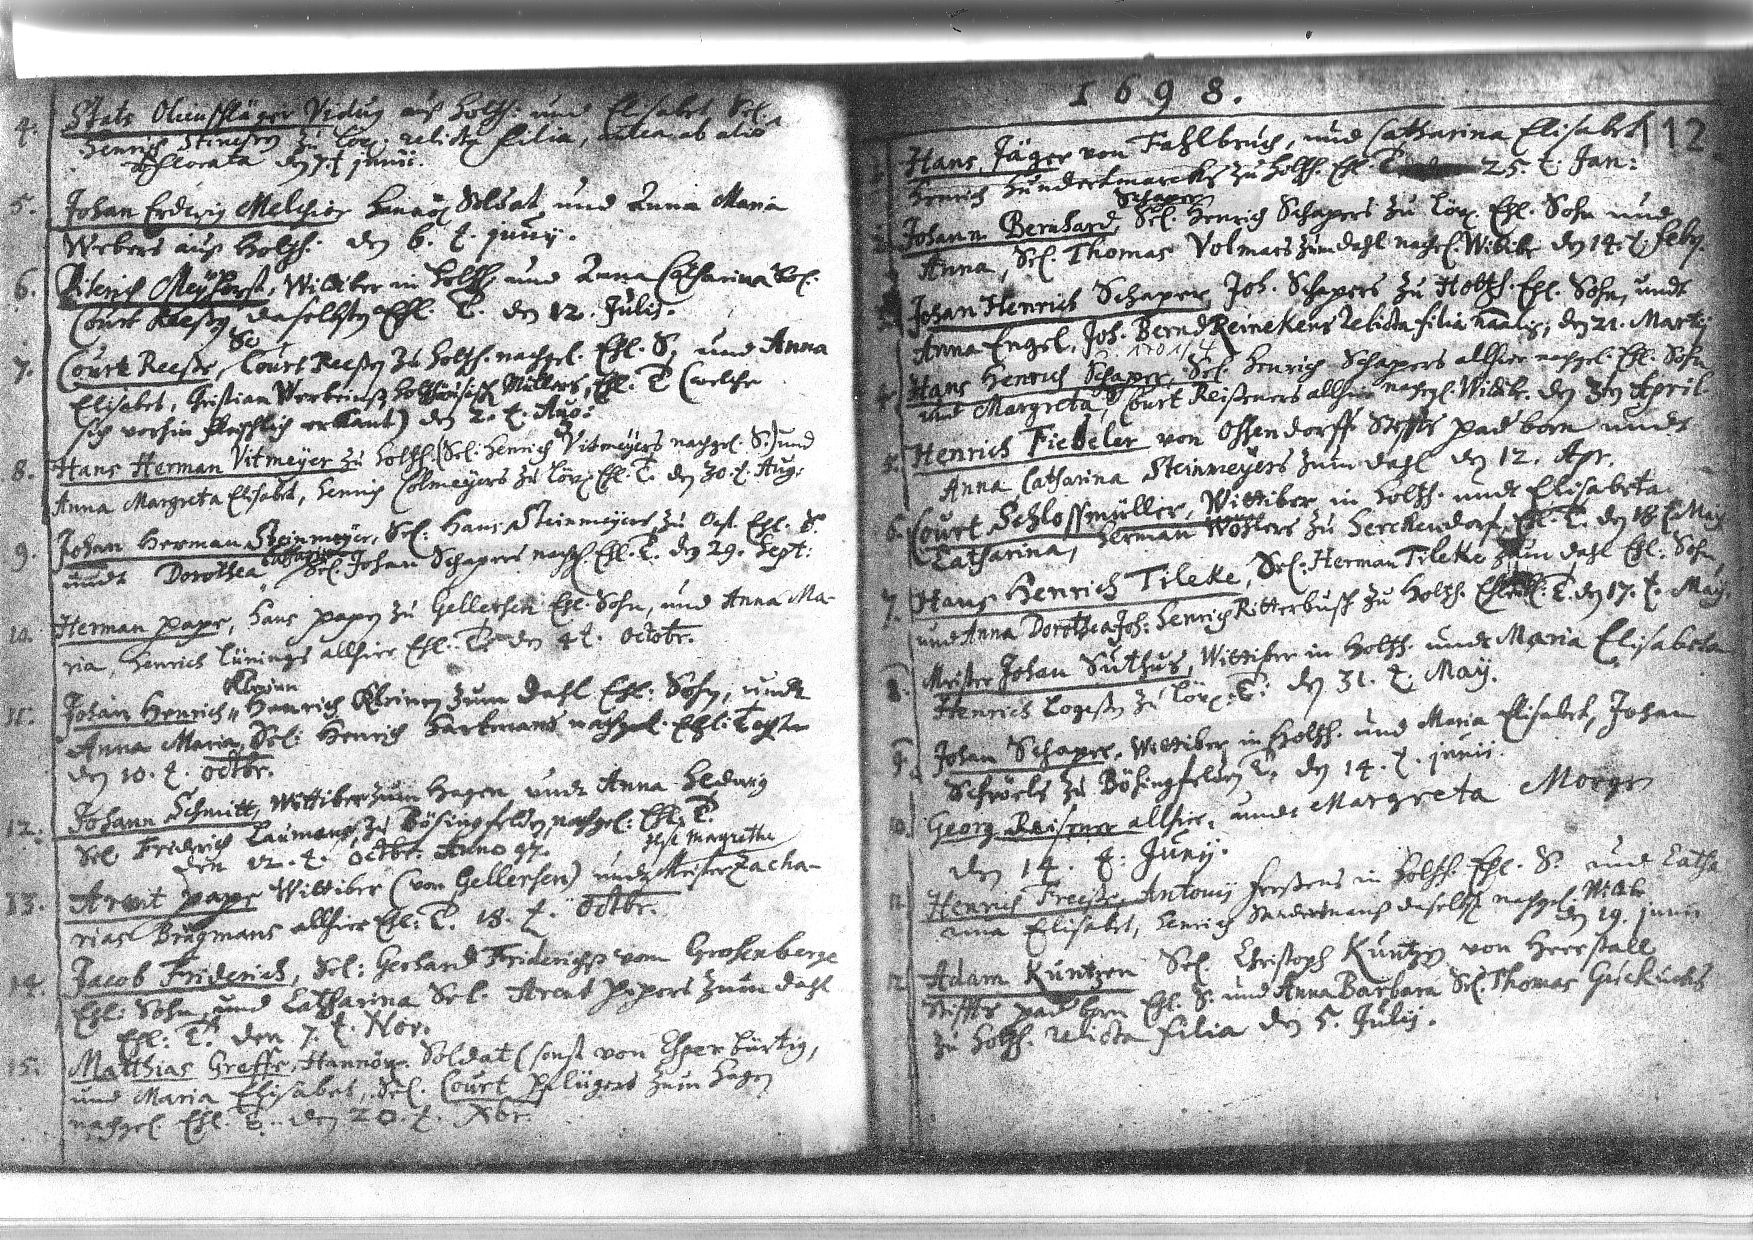 4. Stats Olienschläger Viduus aus Holtzh: und Elisabet, Sel.
Henrich zu relicta filia, antea ab alio
deflorata den 7. t. junii.
5. Johan Erdwig Melchior Hannöv. Soldat und Anna Maria
Webers aus Holtzh. den 6. t. junij.
6. Diterich Meyherst, Wittiber in Holtzh. und Anna Catharina Sel.
Court Reeßen daselbsten Ehl. T. den 12. Julij.
7. Court Reeße, Court Reeßen zu Holtzh. nachgel. Ehl. S. und Anna
Elisabet, Christian Müllers, Ehl. T. (welche
sich vorhin fleischlich erkant) den 2. t. Aug:
8. Hans Herman Vitmeyer zu Holtzh. (Sel. Henrich Vitmeyers nachgel. S.) und
Anna Margreta Elisabet, Henrich Colmeyers zu Ehl. T. den 30. t. Aug.
9. Johan Herman Steinmeyer, Sel: Hans Steinmeyers zu Ehl. S.
undt Dorothea Catharina Sel. Johan Schapers nachgel. Ehl. T. den 29. Sept:
10. Herman pape, Hans papen zu Gellersen Ehl. Sohn, und Anna Ma-
ria, Henrich Lünings allhier Ehl. T. den 4 t. Octobr.
Kleinen
11. Johan Henrich Henrich Kleinen zum Dahl Ehl: Sohn, undt
Anna Maria, Sel: Henrich Hartmans nachgel. Ehl. Tochter
den 10. t. Octbr.
12. Johann Schmitt, Wittiber zum Hagen undt Anna Hedwig
Sel Friedrich Laumans zu Bösingfelden nachgel: Ehl. T.
den 12. t. Octbr. Anno 97.
Ilse Margrethe
13. Arent pape Wittiber (von Gellersen) undt Meister Zacha-
rias Brügmans allhier Ehl. T. 18. t. Octbr.
14. Jacob Friderich, Sel: Gerhard Friderichs vom Grosenberge
Ehl: Sohn und Catharina Sel. Arent Pepers zum Dahl
Ehl: T. den 7. t. Nov.
15. Matthias Greffe, Hannöv. Soldat (sonst von bürtig,
und Maria Elisabet, Sel. Court Pflügers zum Hagen
nachgel Ehl. T. den 20. t. Xbr.
1698.
112
1. Hans Jäger von Fahlbruch, und Catharina Elisabet
Henrich Hundertmarcks zu Holtzh. Ehl. T. 25. t. Jan:
Schaper
2. Johann Bernhard, Sel. Henrich Schapers zu Ehl. Sohn und
Anna, Sel. Thomas Volmars zum Dahl nachgel. Wittibe den 14. t. Febr.
3. Johan Henrich Schaper, Joh. Schapers zu Holtzh. Ehl. Sohn, undt
Anna Engel, Joh. Bernd Reinekens relicta filia den 21. Martij
4. Hans Henrich Schaper, Sel. Henrich Schapers allhier nachgel. Ehl. Sohn
und Margreta, Court Reißeners allhier nachgel. Wittibe. den April
5. Henrich Fiebeler von Ossendorff Stiffts padborn undt
Anna Catharina Steinmeyers zum Dahl den 12. Apr.
6. Court Schlossmüller, Wittiber in Holtzh. undt Elisabeta
Catharina, Herman Wolters zu Herckendorf Ehl. T. den 18. t. May
7. Hans Henrich Tileke, Sel: Herman Tileke zum Dahl Ehl: Sohn
und Anna Dorothea Joh: Henrich Ritterbusch zu Holtzh. Ehl. T. den 17. t. May.
8. Meister Johan Suthus, Wittiber in Holtzh. undt Maria Elisabeta
Henrich zu T. den 31. t. May.
9. Johan Schaper, Wittiber in Holtzh. und Maria Elisabet, Johan
zu Bösingfelden T. den 14. t. junii.
10. Georg Reisener allhier, undt Margreta Morgen
den 14. t: Junij.
11. Henrich Freße, Antonij Freßens in Holtzh. Ehl. S. und Catha
rina Elisabet, Henrich daselbst nachgel. Wittib
den 19. junii
12. Adam Kuntzen Sel. Christoph Kuntzen von Heerstall
Stiffts padborn Ehl. S. und Anna Barbara Sel. Thomas
zu Holtzh. relicta filia den 5. Julij.